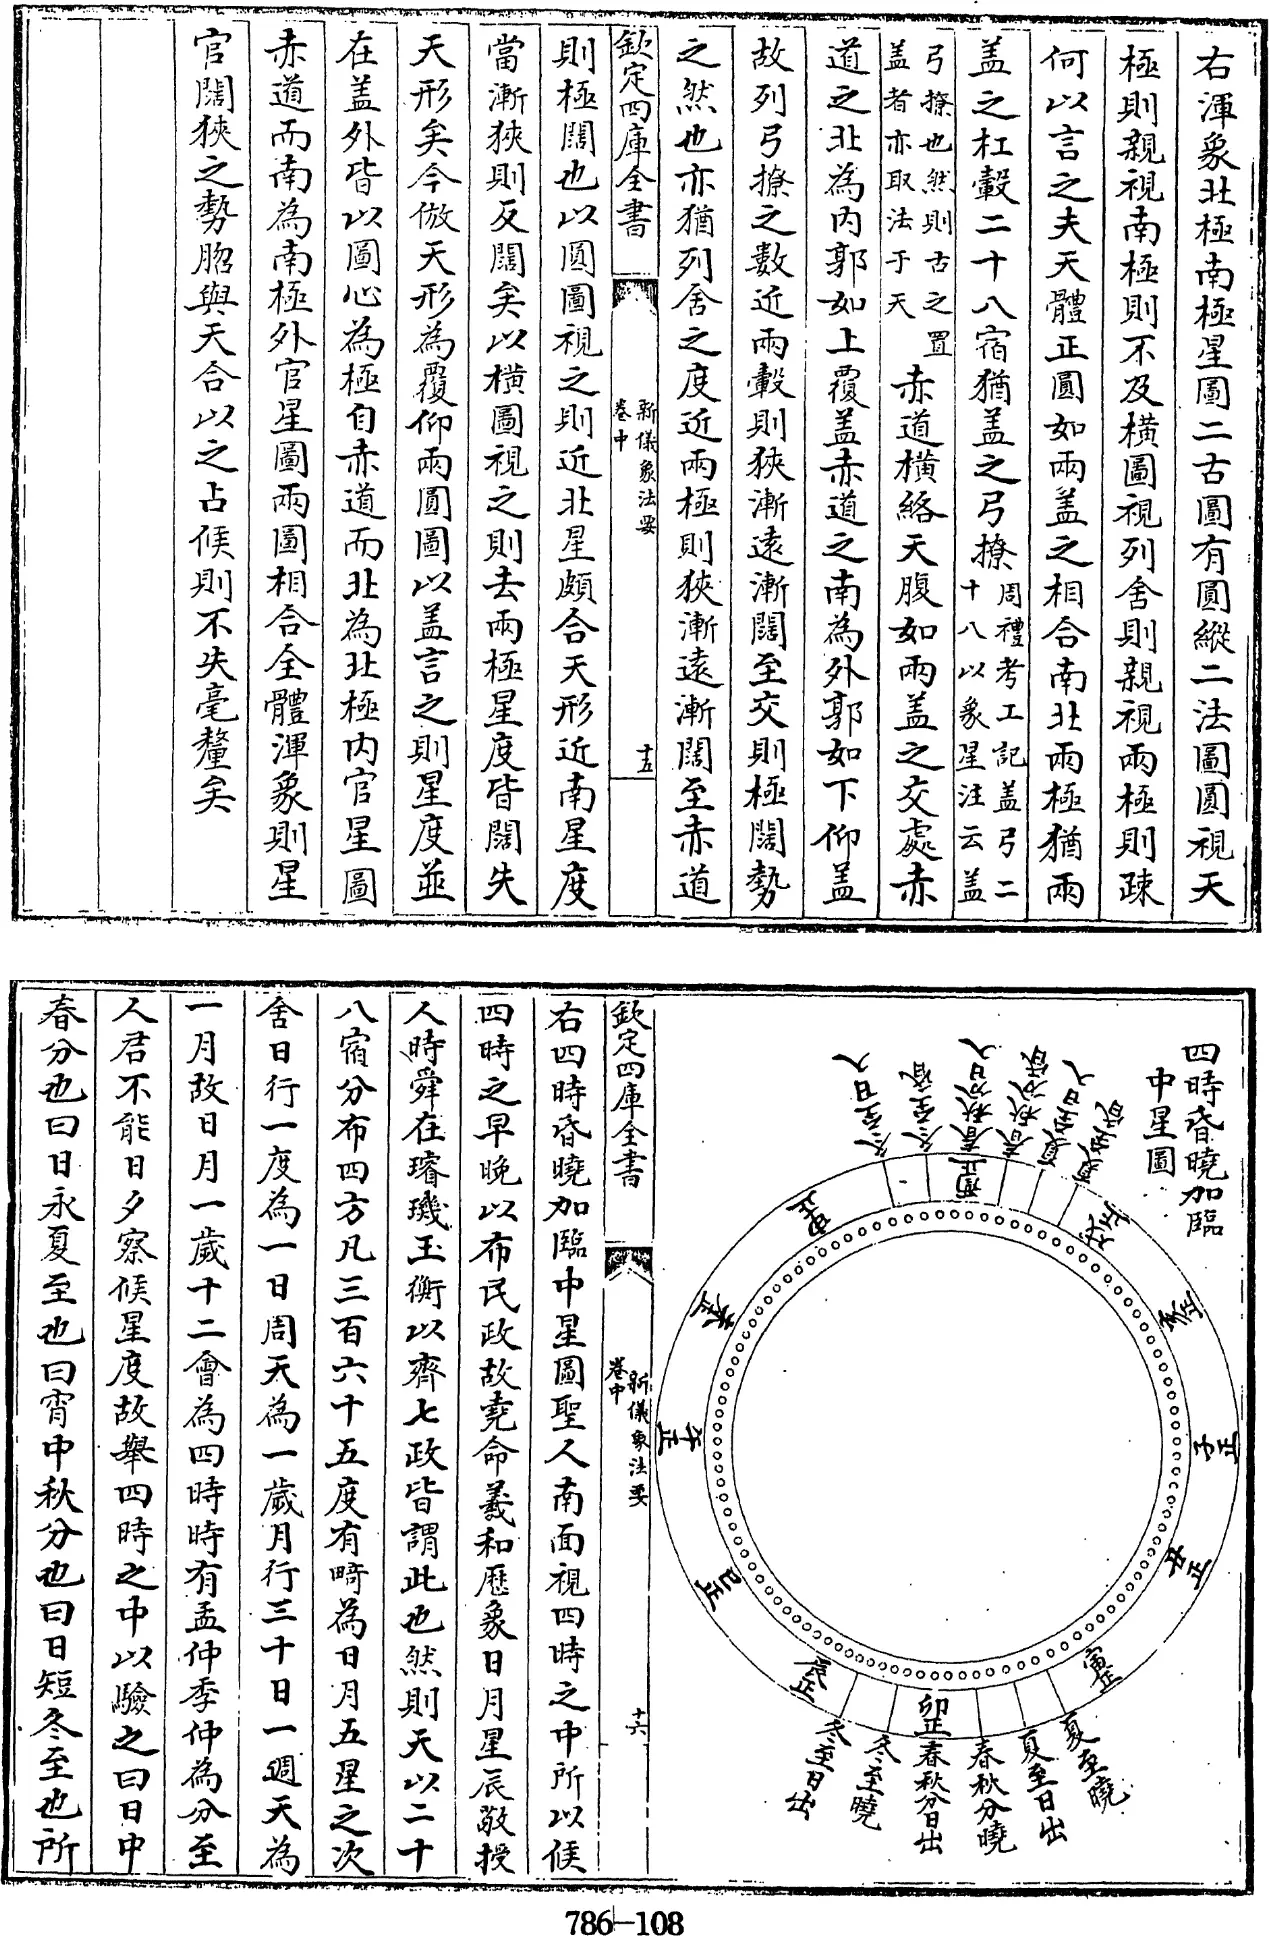 右渾象北極南極星圖二古圖有圓縱二法圖圓視天
極則親視南極則不及橫圖視列舍則親視兩極則疎
何以言之夫天體正圓如兩盖之相合南北兩極猶兩
盖之杠轂二十八宿猶盖之弓撩周禮考工記盖弓二
十八以象星注云盖
弓撩也然則古之置
盖者亦取法于天
赤道橫絡天腹如兩盖之交處赤
道之北為内郭如上覆盖赤道之南為外郭如下仰盖
故列弓撩之數近兩轂則狹漸逺漸闊至交則極闊勢
之然也亦猶列舍之度近兩極則狹漸逺漸闊至赤道
欽定四庫全書
新儀象法要
卷中
十五
則極闊也以圓圖視之則近北星頗合天形近南星度
當漸狹則反闊矣以橫圖視之則去兩極星度皆闊失
天形矣今倣天形為覆仰兩圓圖以盖言之則星度並
在盖外皆以圖心為極自赤道而北為北極内官星圖
赤道而南為南極外官星圖兩圖相合全體渾象則星
官闊狹之勢脗與天合以之占候則不失毫釐矣
四時昏曉加臨
中星圖
夏至昏
夏至日入
春秋分昏
春秋分日入
冬至昏
冬至日入
子正
丑正
寅正
卯正
辰正
巳正
午正
未正
申正
酉正
戌正
亥正
夏至曉
夏至日出
春秋分曉
春秋分日出
冬至曉
冬至日出
欽定四庫全書
新儀象法要
卷中
十六
右四時昏曉加臨中星圖聖人南面視四時之中所以候
四時之早晚以布民政故堯命羲和歷象日月星辰敬授
人時舜在璿璣玉衡以齊七政皆謂此也然則天以二十
八宿分布四方凡三百六十五度有畸為日月五星之次
舍日行一度為一日周天為一歲月行三十日一週天為
一月故日月一歲十二會為四時時有孟仲季仲為分至
人君不能日夕察候星度故舉四時之中以驗之曰日中
春分也曰日永夏至也曰宵中秋分也曰日短冬至也所
786-108